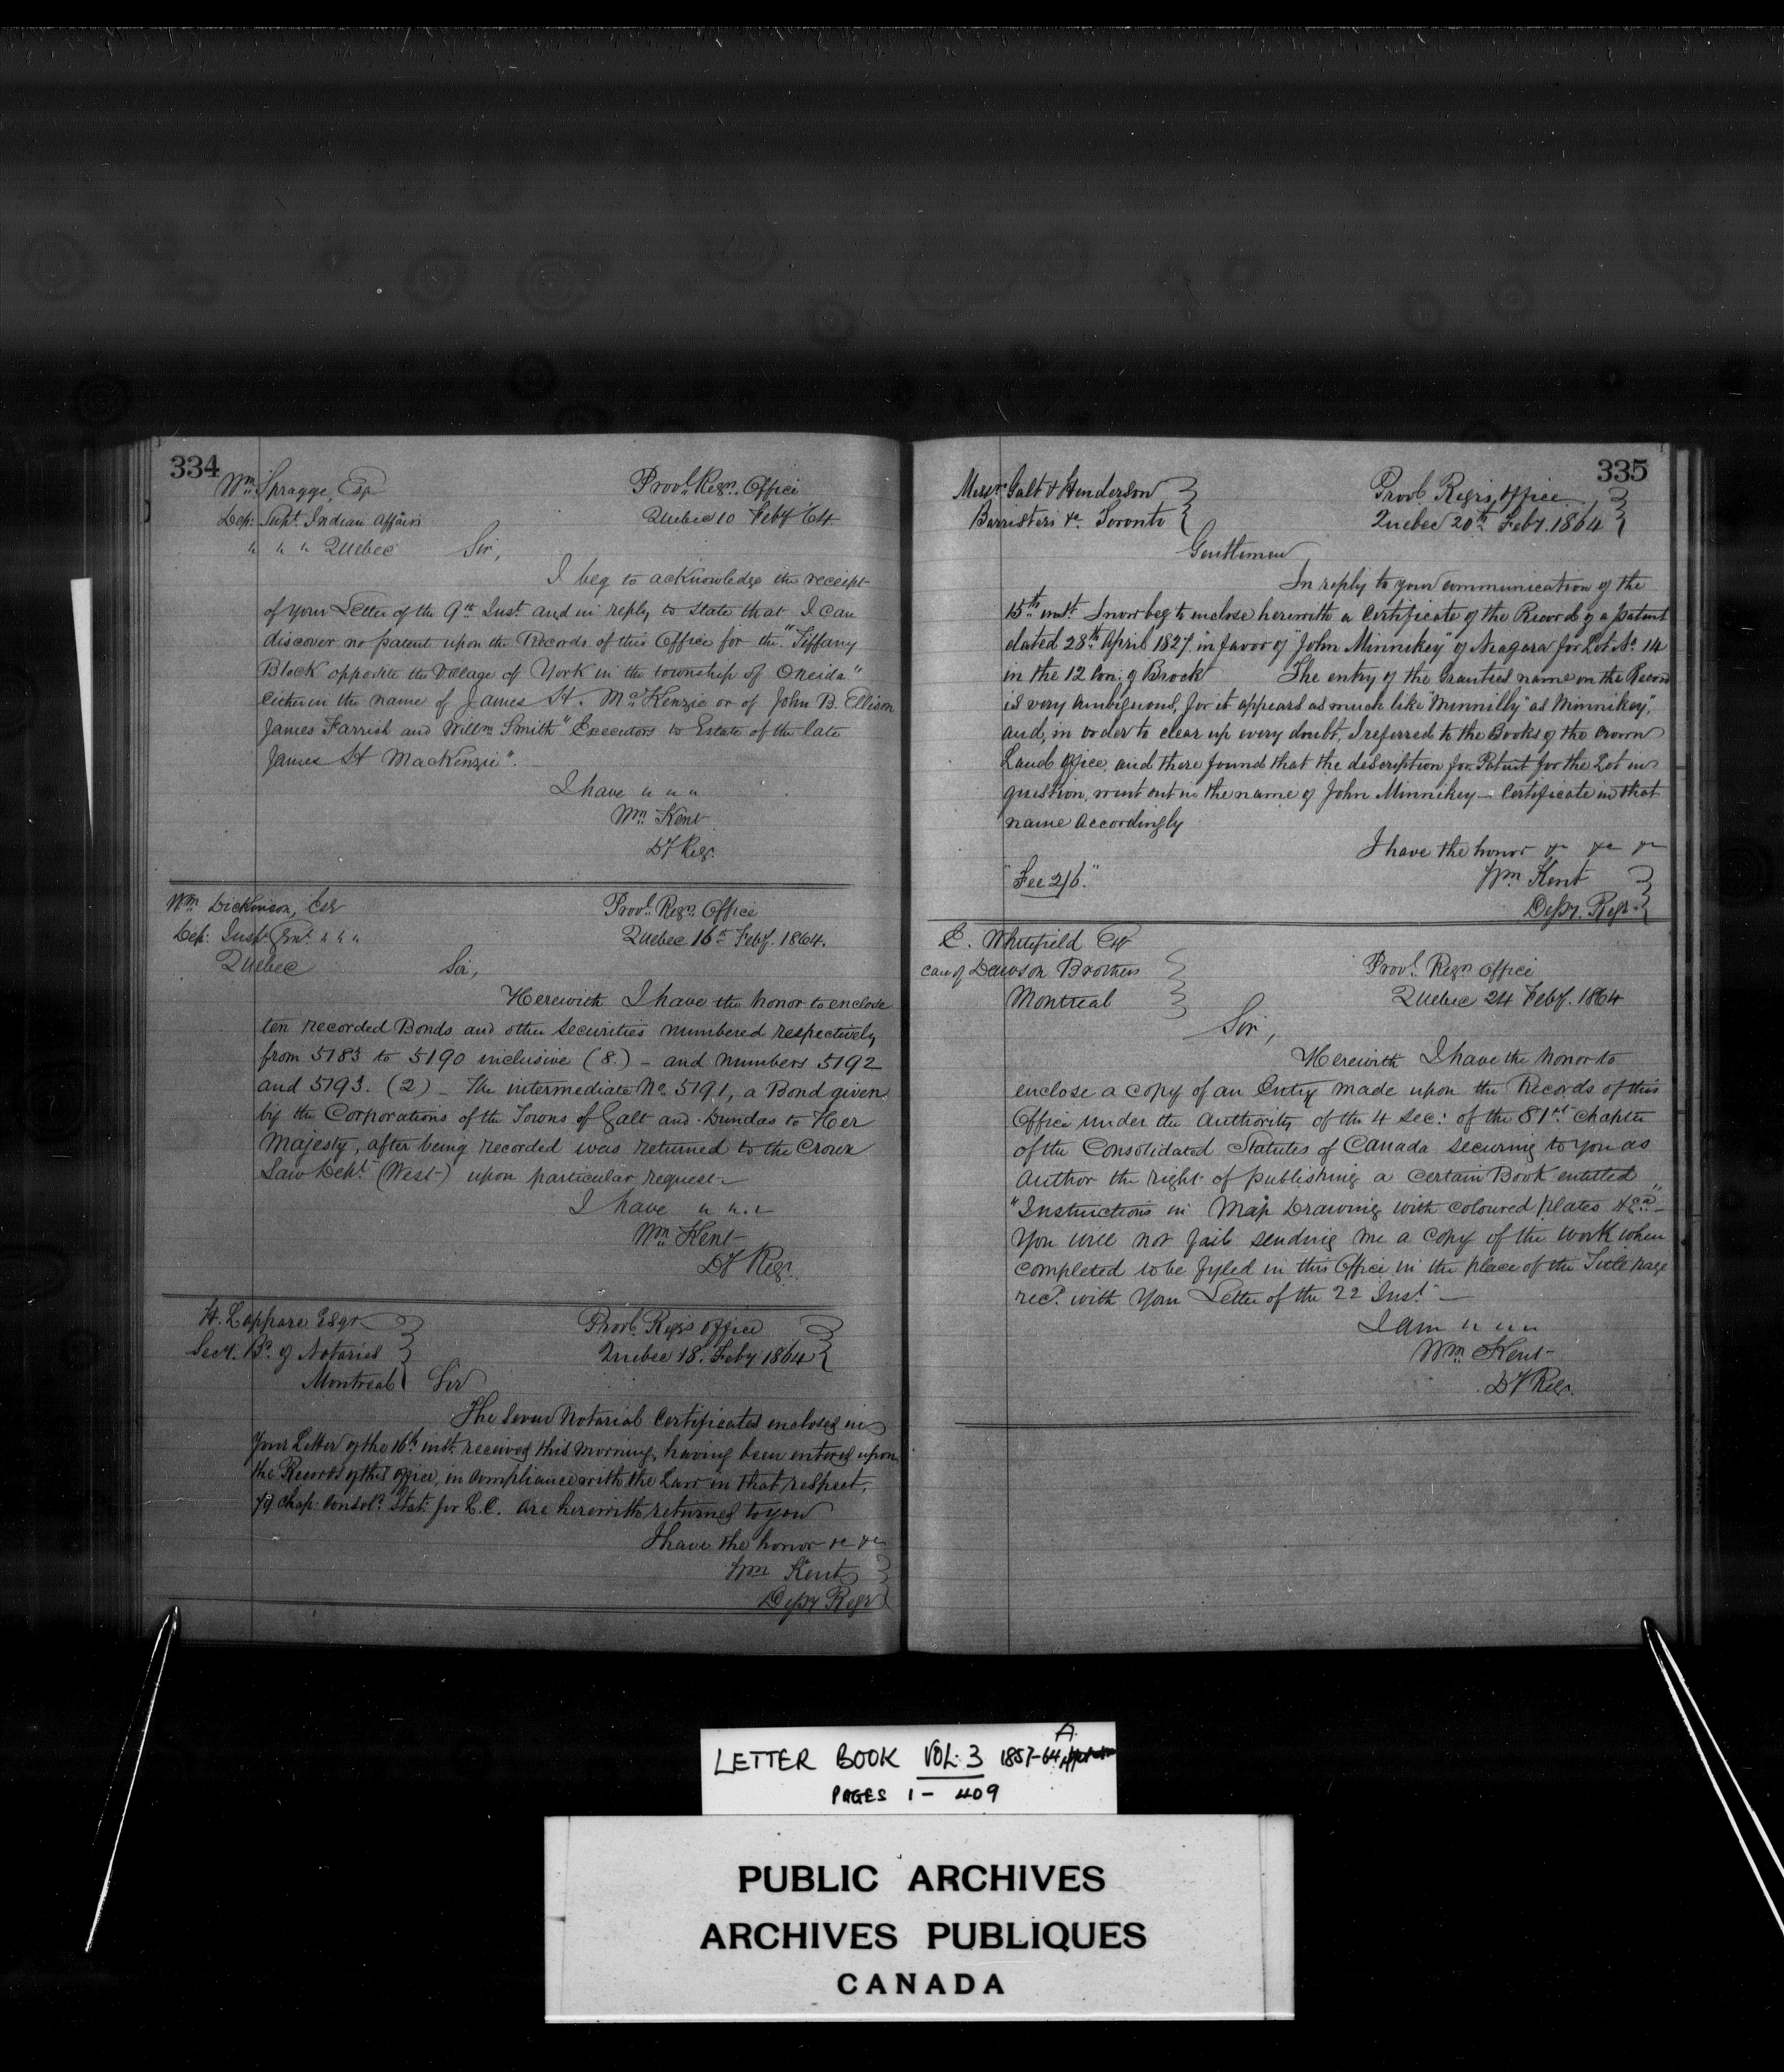 334
Wm Spragge, Esqr
Provl. Regrs. Office
Dep: Supt. Indian Affairs
Quebec 10 Feby /64
" " " Quebec
Sir,
I beg to acknowledge the receipt
of your Letter of the 9th Inst. and in reply to state that I can
discover no patent upon the Records of this Office for the "Tiffany
Block opposite the Village of York in the township of Oneida"
either in the name of James St. McKenzie or of John B. Ellison
James Farrish and Willm Smith "Executors to Estate of the late
James St MacKenzie".
I have " " "
Wm Kent
Dy Regr.
Wm Dickinson, Esqr
Provl. Regrs Office
Dep: Inspr Genl. " " "
Quebec 16th Feby. 1864.
Quebec
Sir,
Herewith I have the honor to enclose
ten recorded Bonds and other Securities numbered respectively
from 5183 to 5190 inclusive (8) - and numbers 5192
and 5193. (2) - The intermediate No. 5191, a Bond given
by the Corporations of the Towns of Galt and Dundas to Her
Majesty, after being recorded was returned to the Crown
Law Dept. (West) upon particular request -
I have " " "
Wm Kent
Dy Regr.
H. Lappare Esqr
Provl. Regrs office
Secy. Bd. of Notaries
Quebec 18. Feby 1864
Montreal
Sir
The Seven Notarial Certificates enclosed in
Your Letter of the 16th inst. received this morning, having been entered upon
the Records of this office, in compliance with the Law in that respect,
79 Chap: Consold. Stat: for L.C. are herewith returned to you
I have the honor &c &c
Wm Kent
Depy Regr
335
Messrs Galt & Henderson
Provl. Regrs office
Barristers &c. Toronto
Quebec 20th Feby. 1864
Gentlemen
In reply to your communication of the
15th inst. I now beg to enclose herewith a Certificate of the Record of a patent
dated 28th April 1827. in favor of "John Minnikey" of Niagara for Lot No. 14
in the 12 Con: of Brock The entry of the Grantees name on the Record
is very ambiguous, for it appears as much like "Minnilly" as "Minnikey",
and, in order to clear up every doubt, I referred to the Books of the Crown
Land office, and there found that the description for Patent for the Lot in
question, went out in the name of John Minnikey - Certificate in that
name accordingly
I have the honor &c &c &c
"Fee 2/6."
Wm Kent
Depy. Regr.
E. Whitefield Esqr
care of Dawson Brothers
Provl. Regrs office
Montreal
Quebec 24 Feby. 1864
Sir,
Herewith I have the honor to
enclose a copy of an Entry made upon the Records of this
Office under the Authority of the 4 Sec: of the 81st Chapter
of the Consolidated Statutes of Canada securing to you as
Author the right of publishing a certain Book entitled
"Instructions in Map Drawing with coloured plates &ca" -
You will not fail sending me a copy of the work when
completed to be fyled in this Office in the place of the Title page
recd. with Your Letter of the 22 Inst. -
I am " " "
Wm Kent
Dy Regr.
LETTER BOOK VOL. 3 1857-64 A
PAGES 1 - 409
PUBLIC ARCHIVES
ARCHIVES PUBLIQUES
CANADA